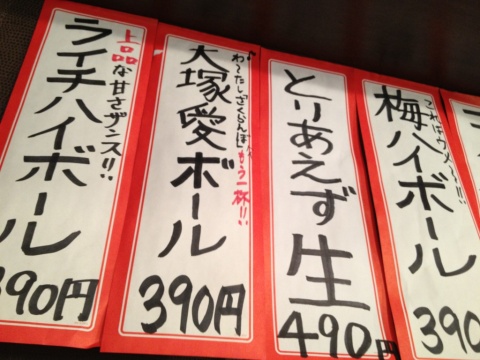 上品な甘さザンス!!
ライチハイボール
390円
わ〜たしさくらんぼ もう一杯!!
大塚愛ボール
390円
とりあえず生
490円
梅ハイボール
390